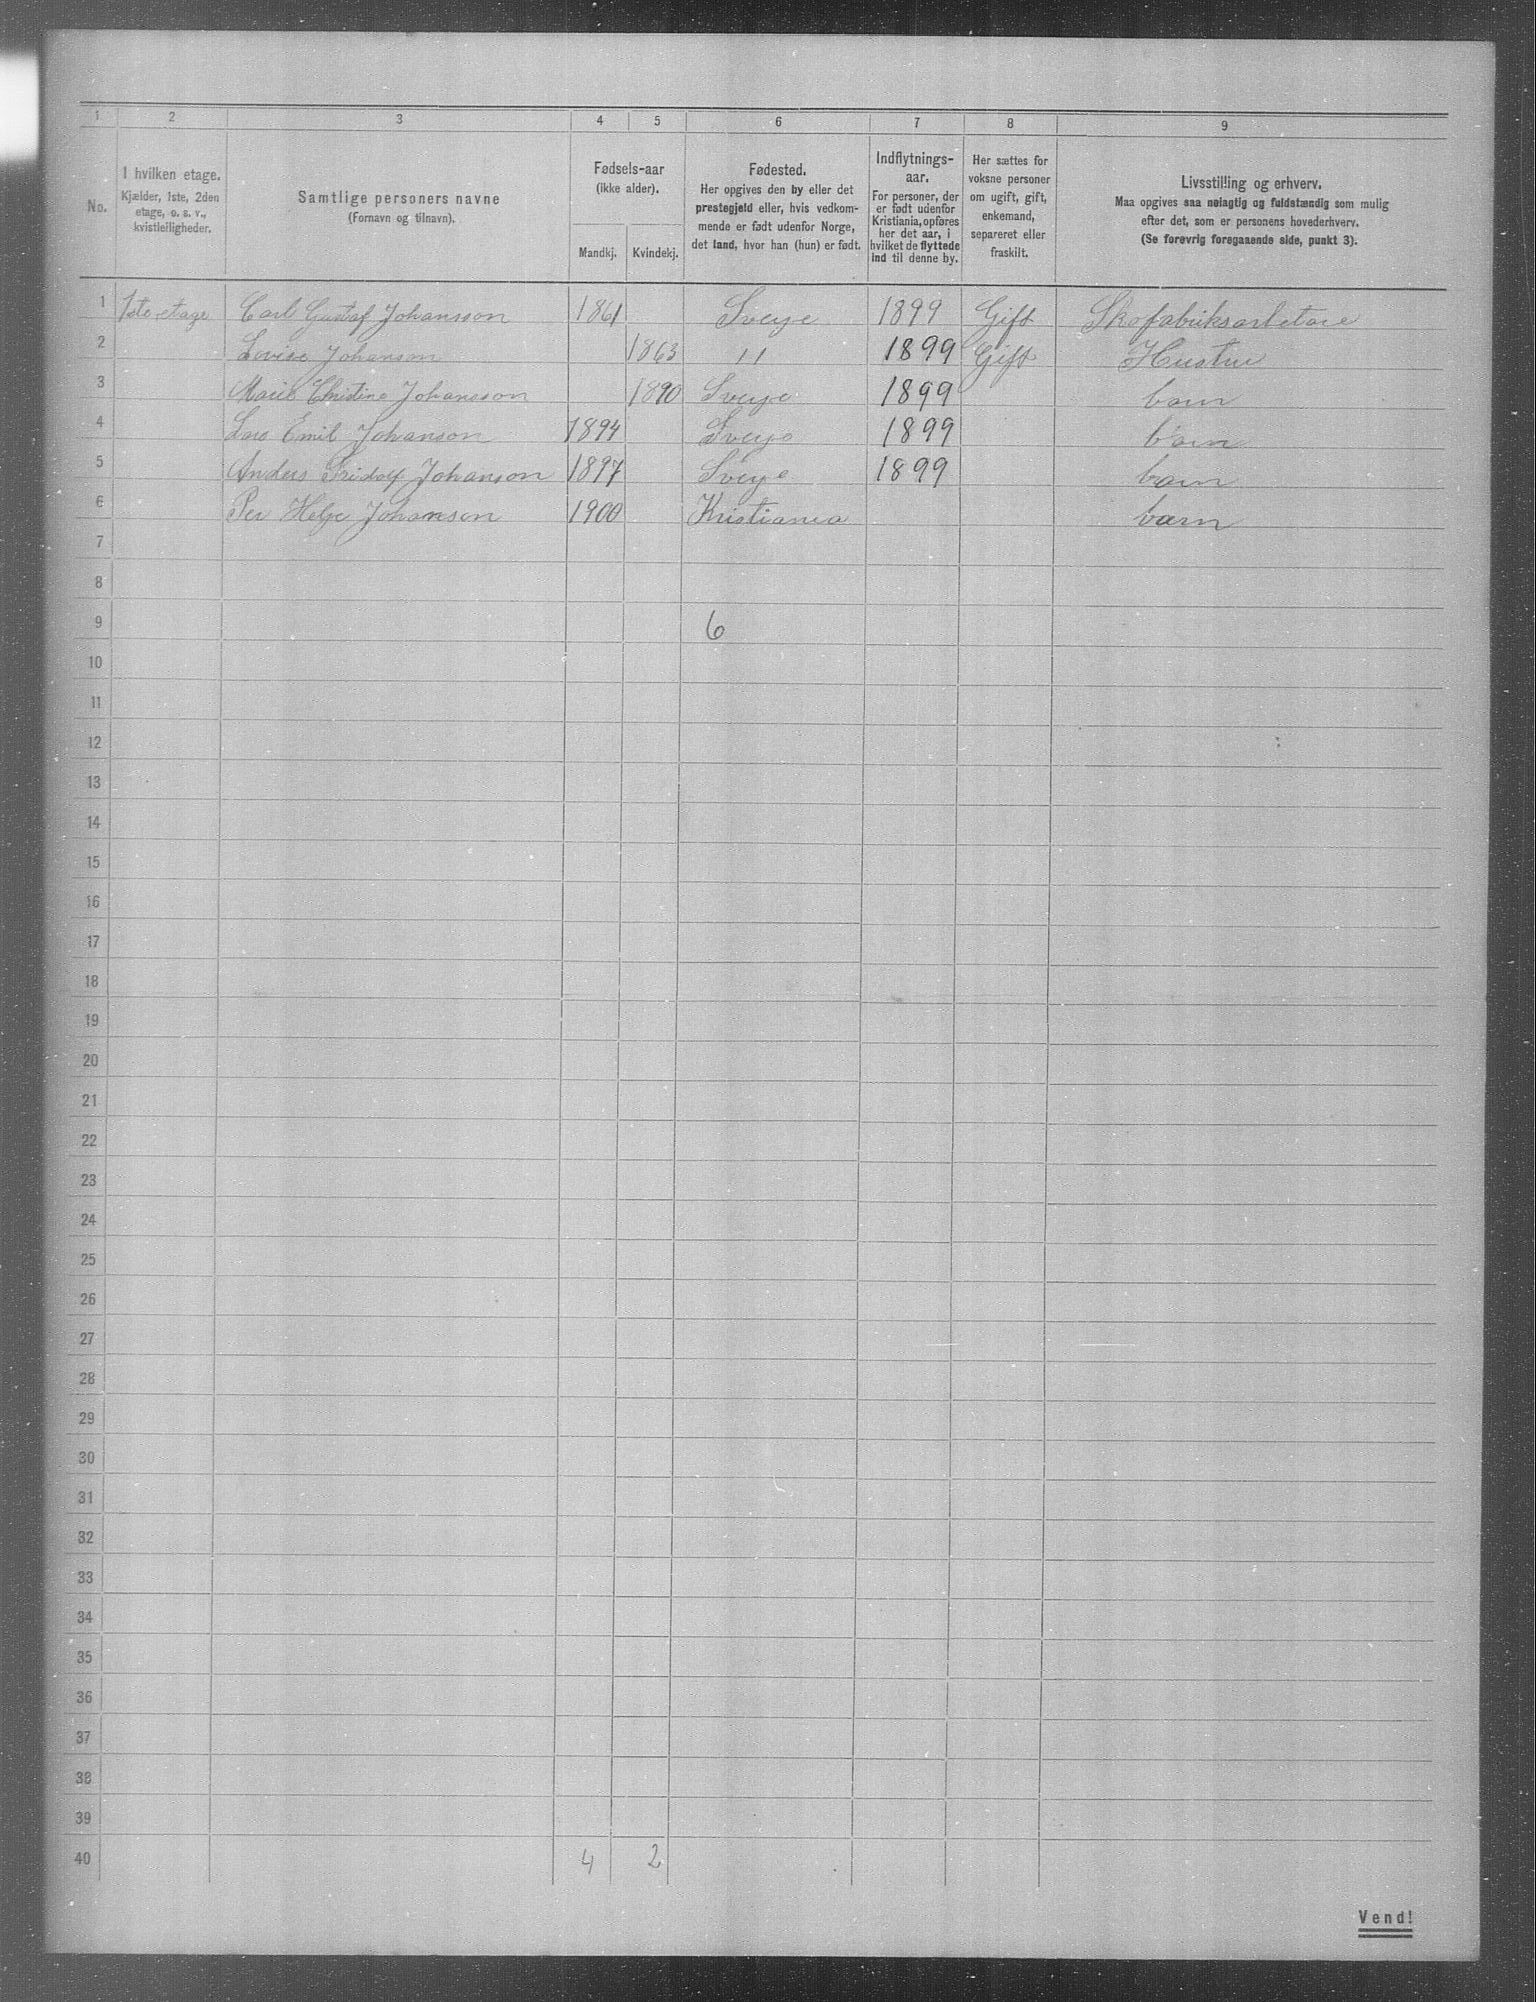 1 2 3 4 5 6 7 8 9
No.
I hvilken etage.
Kjælder, 1ste, 2den
etage, o. s. v.,
kvistleiligheder.
Samtlige personers navne
(Fornavn og tilnavn).
Fødsels-aar
(ikke alder).
Mandkj. Kvindekj.
Fødested.
Her opgives den by eller det
prestegjeld eller, hvis vedkom-
mende er født udenfor Norge,
det land, hvor han (hun) er født.
Indflytnings-
aar.
For personer, der
er født udenfor
Kristiania, opføres
her det aar, i
hvilket de flyttede
ind til denne by.
Her sættes for
voksne personer
om ugift, gift,
enkemand,
separeret eller
fraskilt.
Livsstilling og erhverv.
Maa opgives saa nøiagtig og fuldstændig som mulig
efter det, som er personens hovederhverv.
(Se forøvrig foregaaende side, punkt 3).
1 1ste etage Carl Gustaf Johansson 1861 Sverje 1899 Gift Skofabriksarbetare
2 Lovise Johanson 1863 " 1899 Gift Hustru
3 Marie Christine Johansson 1890 Sverje 1899 barn
4 Lars Emil Johanson 1894 Sverje 1899 barn
5 Anders Fridolf Johanson 1897 Sverje 1899 barn
6 Per Helge Johanson 1900 Kristiania barn
7
8
9 6
10
11
12
13
14
15
16
17
18
19
20
21
22
23
24
25
26
27
28
29
30
31
32
33
34
35
36
37
38
39
40 4 2
Vend!